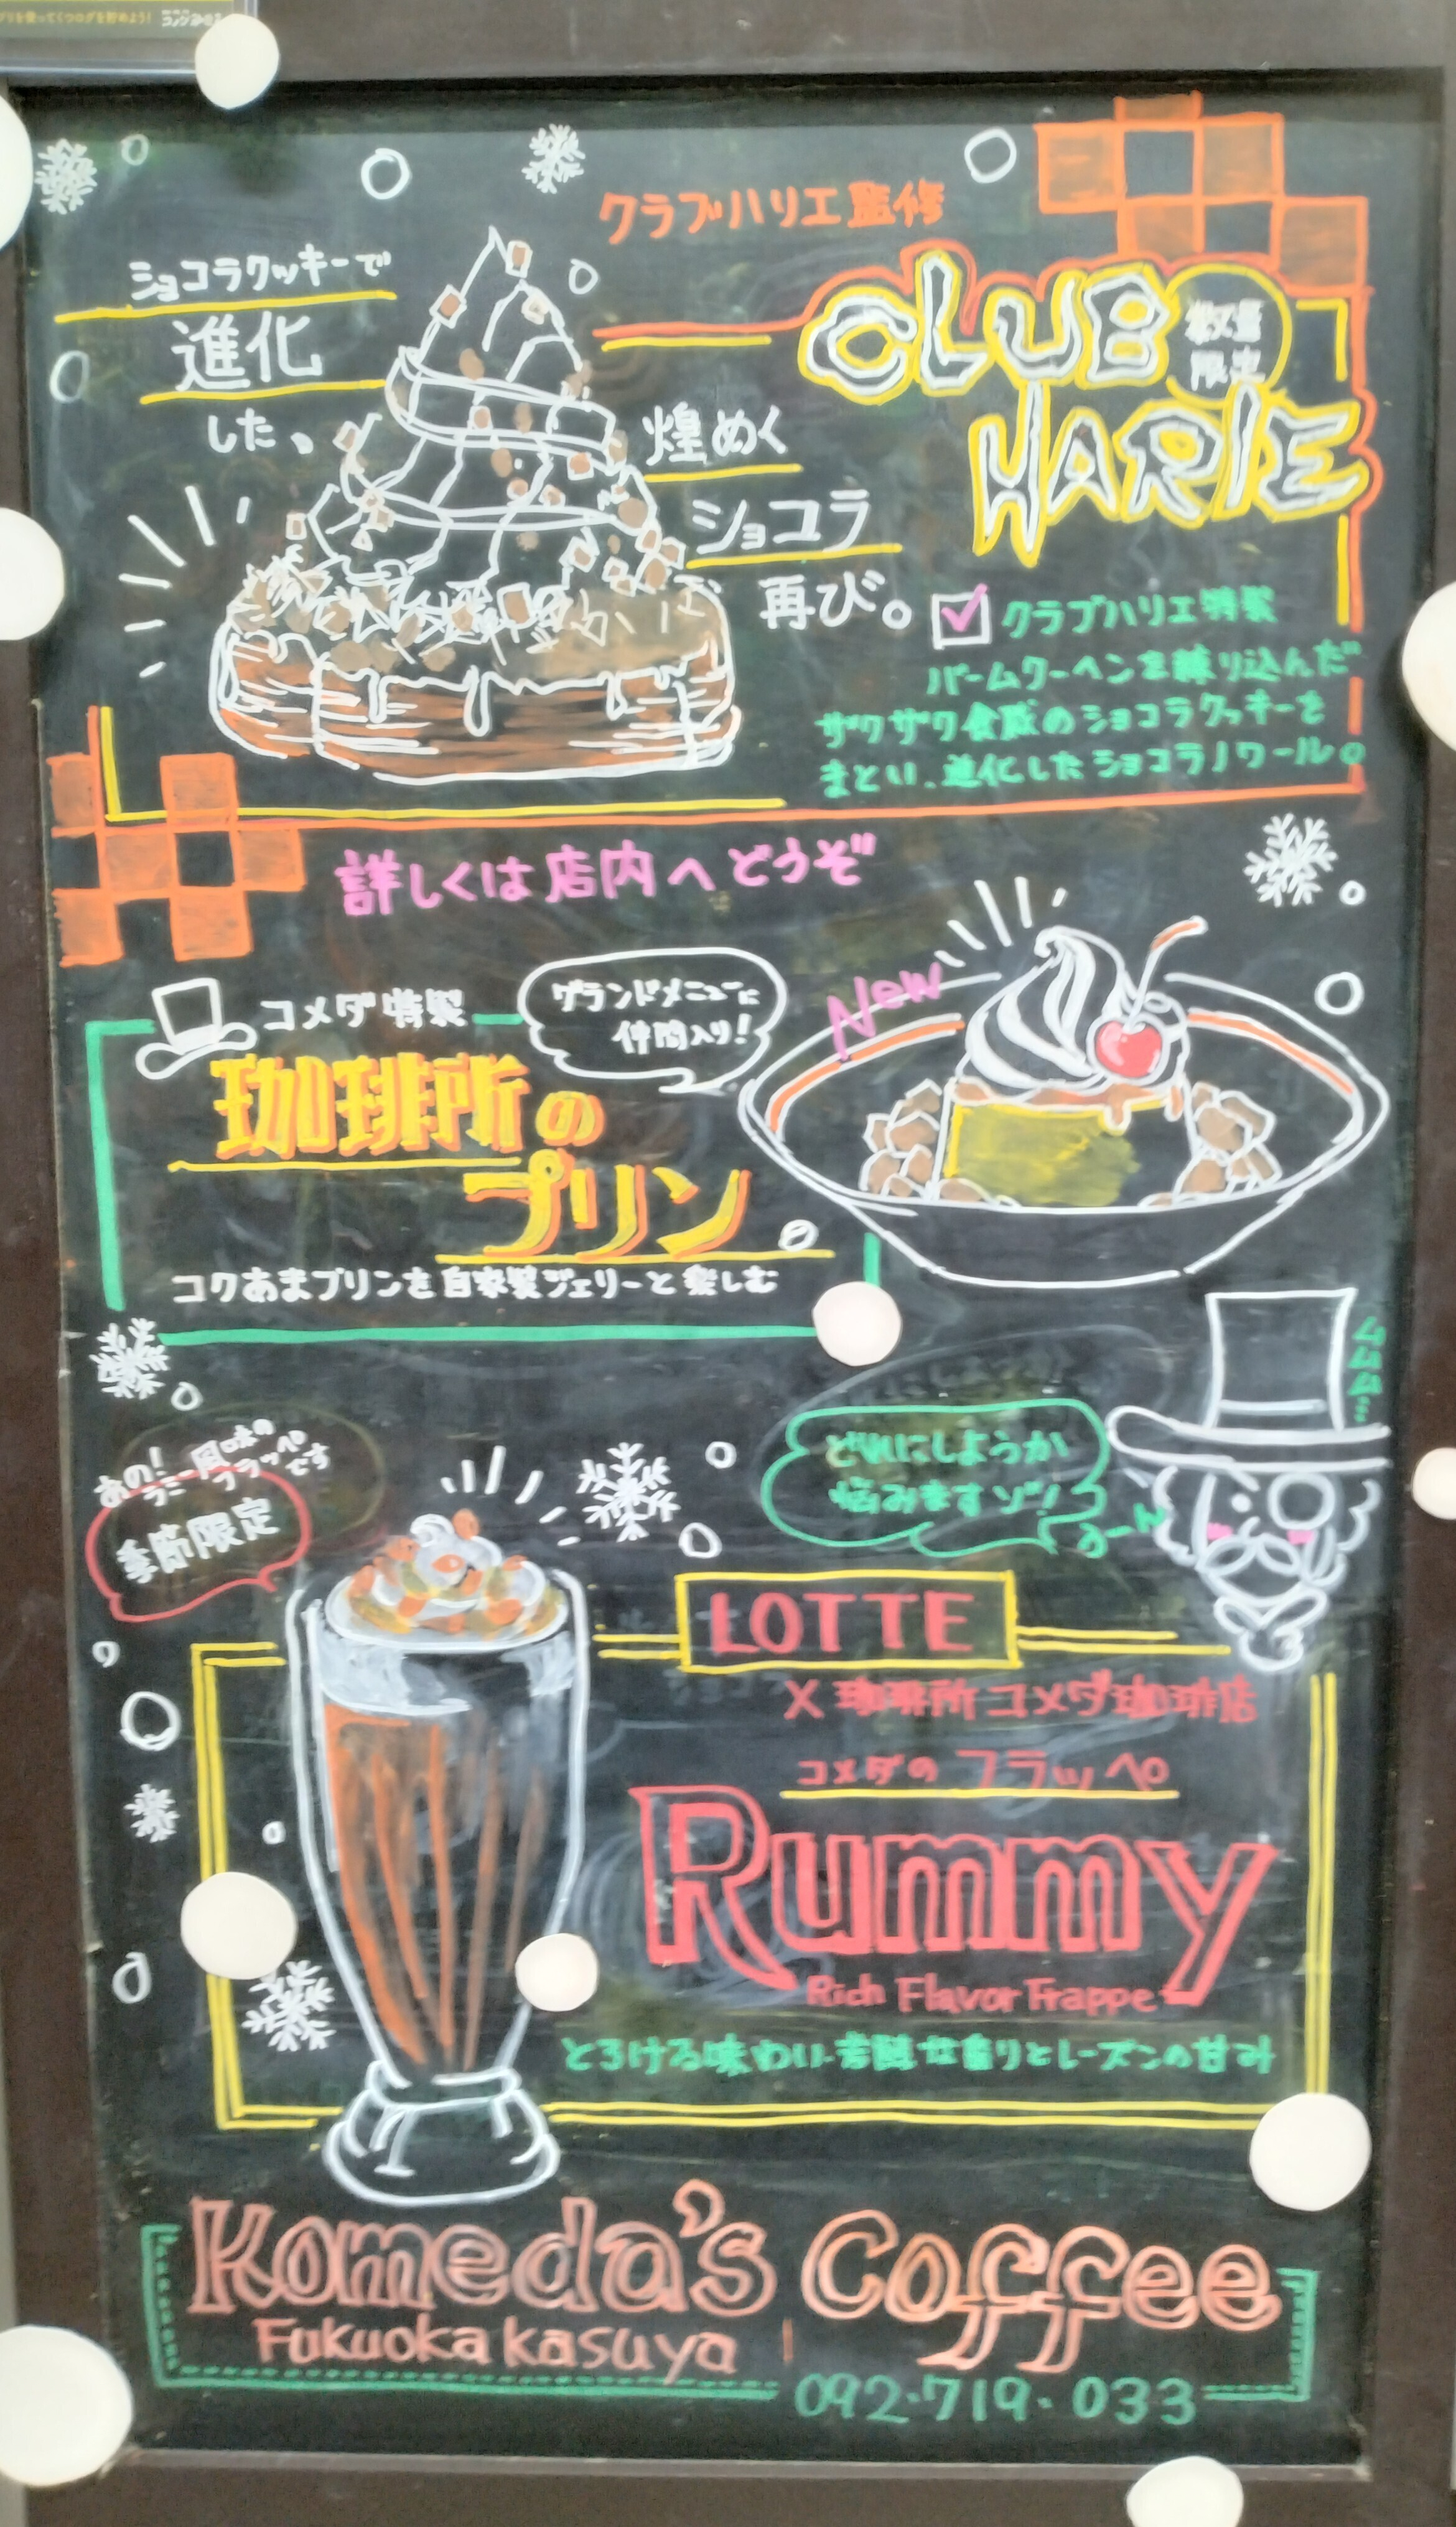 クラブハリエ監修
CLUB
HARIE
数量
限定
ショコラクッキーで
進化
した、
煌めく
ショコラ
再び。
クラブハリエ特製
バームクーヘンを練り込んだ
ザクザク食感のショコラクッキーを
まとい、進化したショコラノワール。
詳しくは店内へどうぞ
コメダ特製
グランドメニューに
仲間入り!
New
珈琲所の
プリン
コクあまプリンを自家製ジェリーと楽しむ
あの!
ラミー風味の
フラッペです
季節限定
どれにしようか
悩みますゾ!
うーん
ムムム…
LOTTE
X 珈琲所コメダ珈琲店
コメダのフラッペ
Rummy
Rich Flavor Frappe
とろける味わい芳醇な香りとレーズンの甘み
Komeda's Coffee
Fukuoka Kasuya
092-719-033